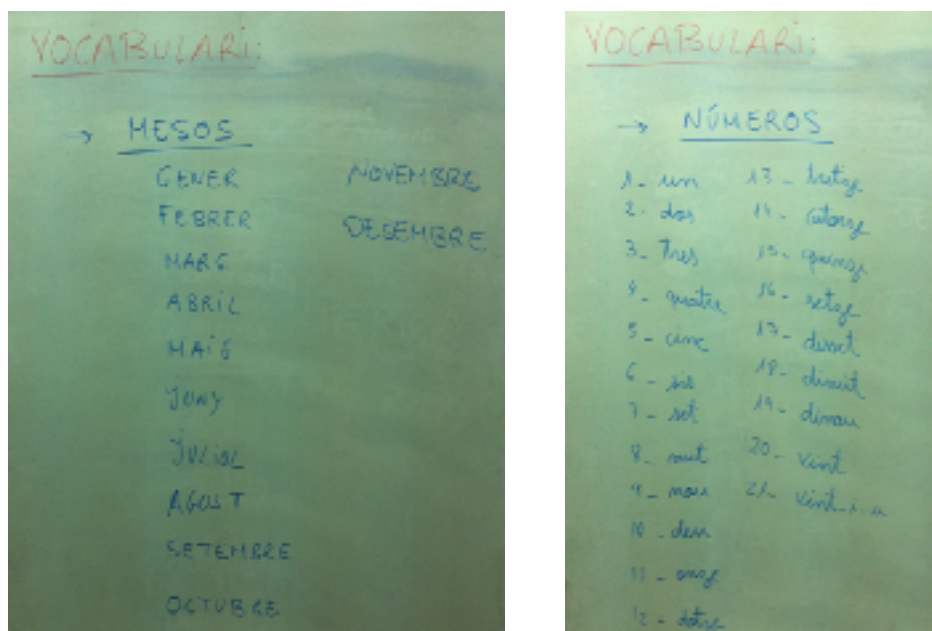 VOCABULARI:
→ MESOS
GENER
FEBRER
MARÇ
ABRIL
MAIG
JUNY
JULIOL
AGOST
SETEMBRE
OCTUBRE
NOVEMBRE
DESEMBRE
VOCABULARI:
→ NÚMEROS
1 - un
2 - dos
3 - Tres
4 - quatre
5 - cinc
6 - sis
7 - set
8 - vuit
9 - nou
10 - deu
11 - onze
12 - dotze
13 - tretze
14 - catorze
15 - quinze
16 - setze
17 - disset
18 - divuit
19 - dinou
20 - vint
21 - vint-i-u